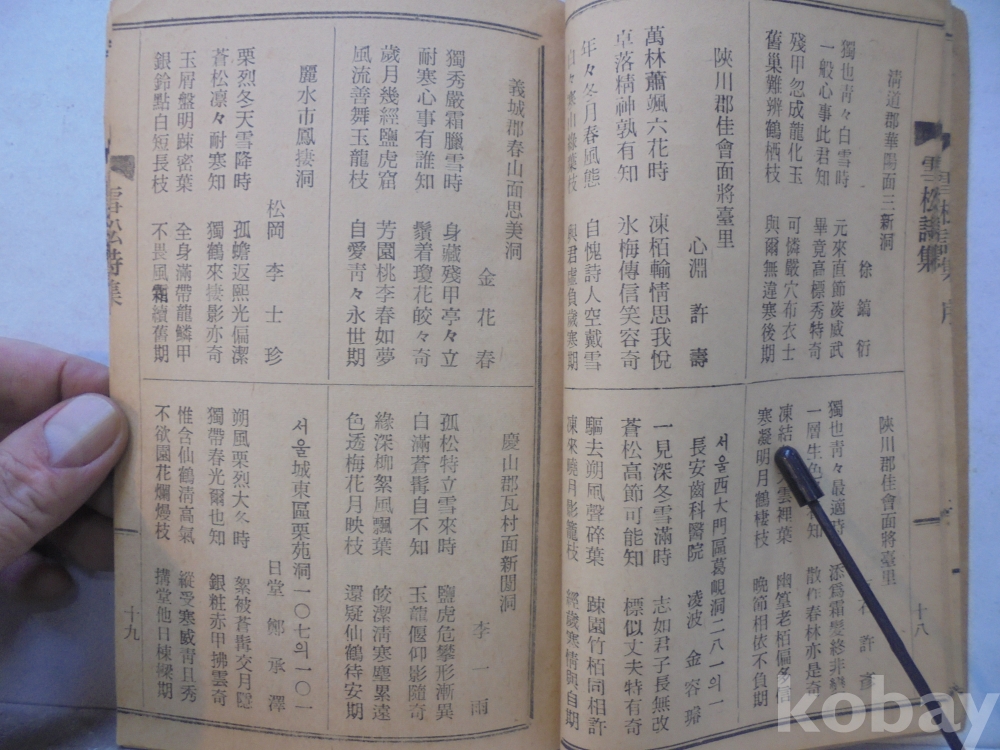 雪松詩集
清道郡華陽面三新洞
徐鏑衍
獨也靑々白雪時 元來直節凌威武
一般心事此君知 畢竟高標秀特奇
殘甲忽成龍化玉 可憐嚴穴布衣士
舊巢難辨鶴栖枝 與爾無違寒後期
陜川郡佳會面將臺里
心淵 許壽
萬林蕭颯六花時 凍栢輸情思我悅
卓落精神孰有知 氷梅傳信笑容奇
年々冬月春風態 自愧詩人空戴雪
與君虛負歲寒期
陜川郡佳會面將臺里
許
獨也靑々最適時 添爲霜鬢終非
一層生色 知 散作春林亦是奇
凍結 雲裡葉 幽篁老栢偏多
寒凝明月鶴棲枝 晩節相依不負期
서울西大門區葛峴洞二八一의一
長安齒科醫院 凌波 金容璿
一見深冬雪滿時 志如君子長無改
蒼松高節可能知 標似丈夫特有奇
驅去朔風聲碎葉 踈園竹栢同相許
凍來曉月影龍枝 經歲寒情與自期
十八
義城郡春山面思美洞
金花春
獨秀嚴霜臘雪時 身藏殘甲亭々立
耐寒心事有誰知 鬚着瓊花皎々奇
歲月幾經鹽虎窟 芳園桃李春如夢
風流善舞玉龍枝 自愛靑々永世期
麗水市鳳捿洞
松岡 李士珍
栗烈冬天雪降時 孤蟾返熙光偏潔
蒼松凛々耐寒知 獨鶴來捿影亦奇
玉屑盤明踈密葉 全身滿帶龍鱗甲
銀鈴點白短長枝 不畏風霜續舊期
慶山郡瓦村面新閭洞
李一雨
孤松特立雪來時 鹽虎危攀形漸異
白滿蒼髯自不知 玉龍偃仰影隨奇
緣深柳絮風飄葉 皎潔淸寒塵累遠
色透梅花月映枝 還疑仙鶴待安期
서울城東區栗苑洞一○七의一○一
日堂 鄭承澤
朔風栗烈大冬時 絮被蒼髯交月隱
獨帶春光爾也知 銀粧赤甲拂雲奇
惟含仙鶴淸高氣 縱受寒威靑且秀
不欲園花爛熳枝 搆堂他日棟樑期
雪松詩集
十九
kobay